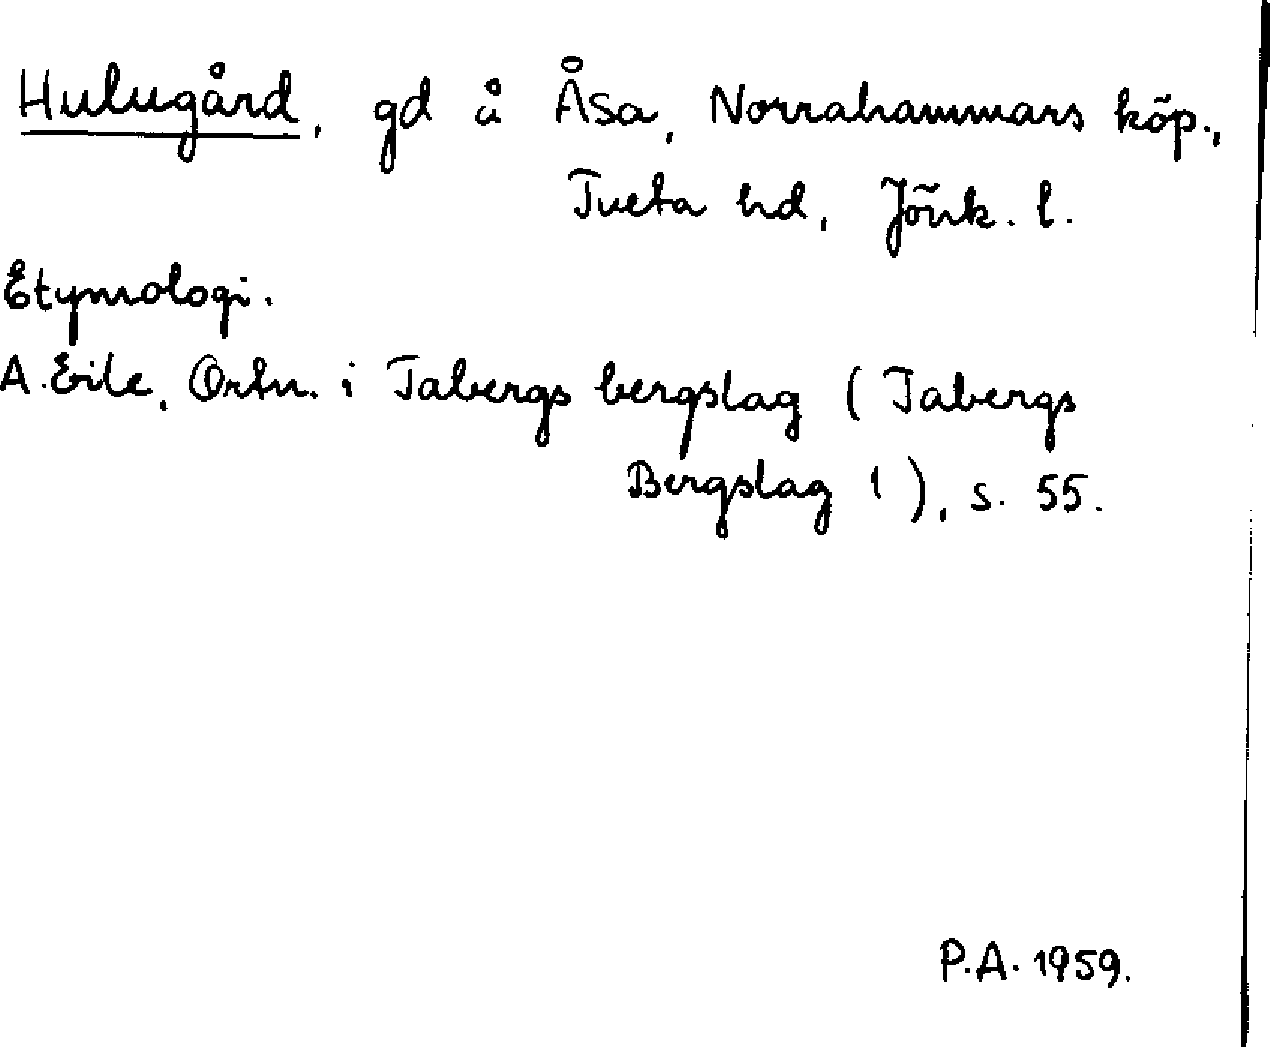 Hulugård, gd å Åsa, Norrahammars köp.,
Tveta hd, Jönk. l.
Etymologi.
A. Eile, Ortn. i Tabergs bergslag (Tabergs
Bergslag 1), s. 55.
P.A. 1959.